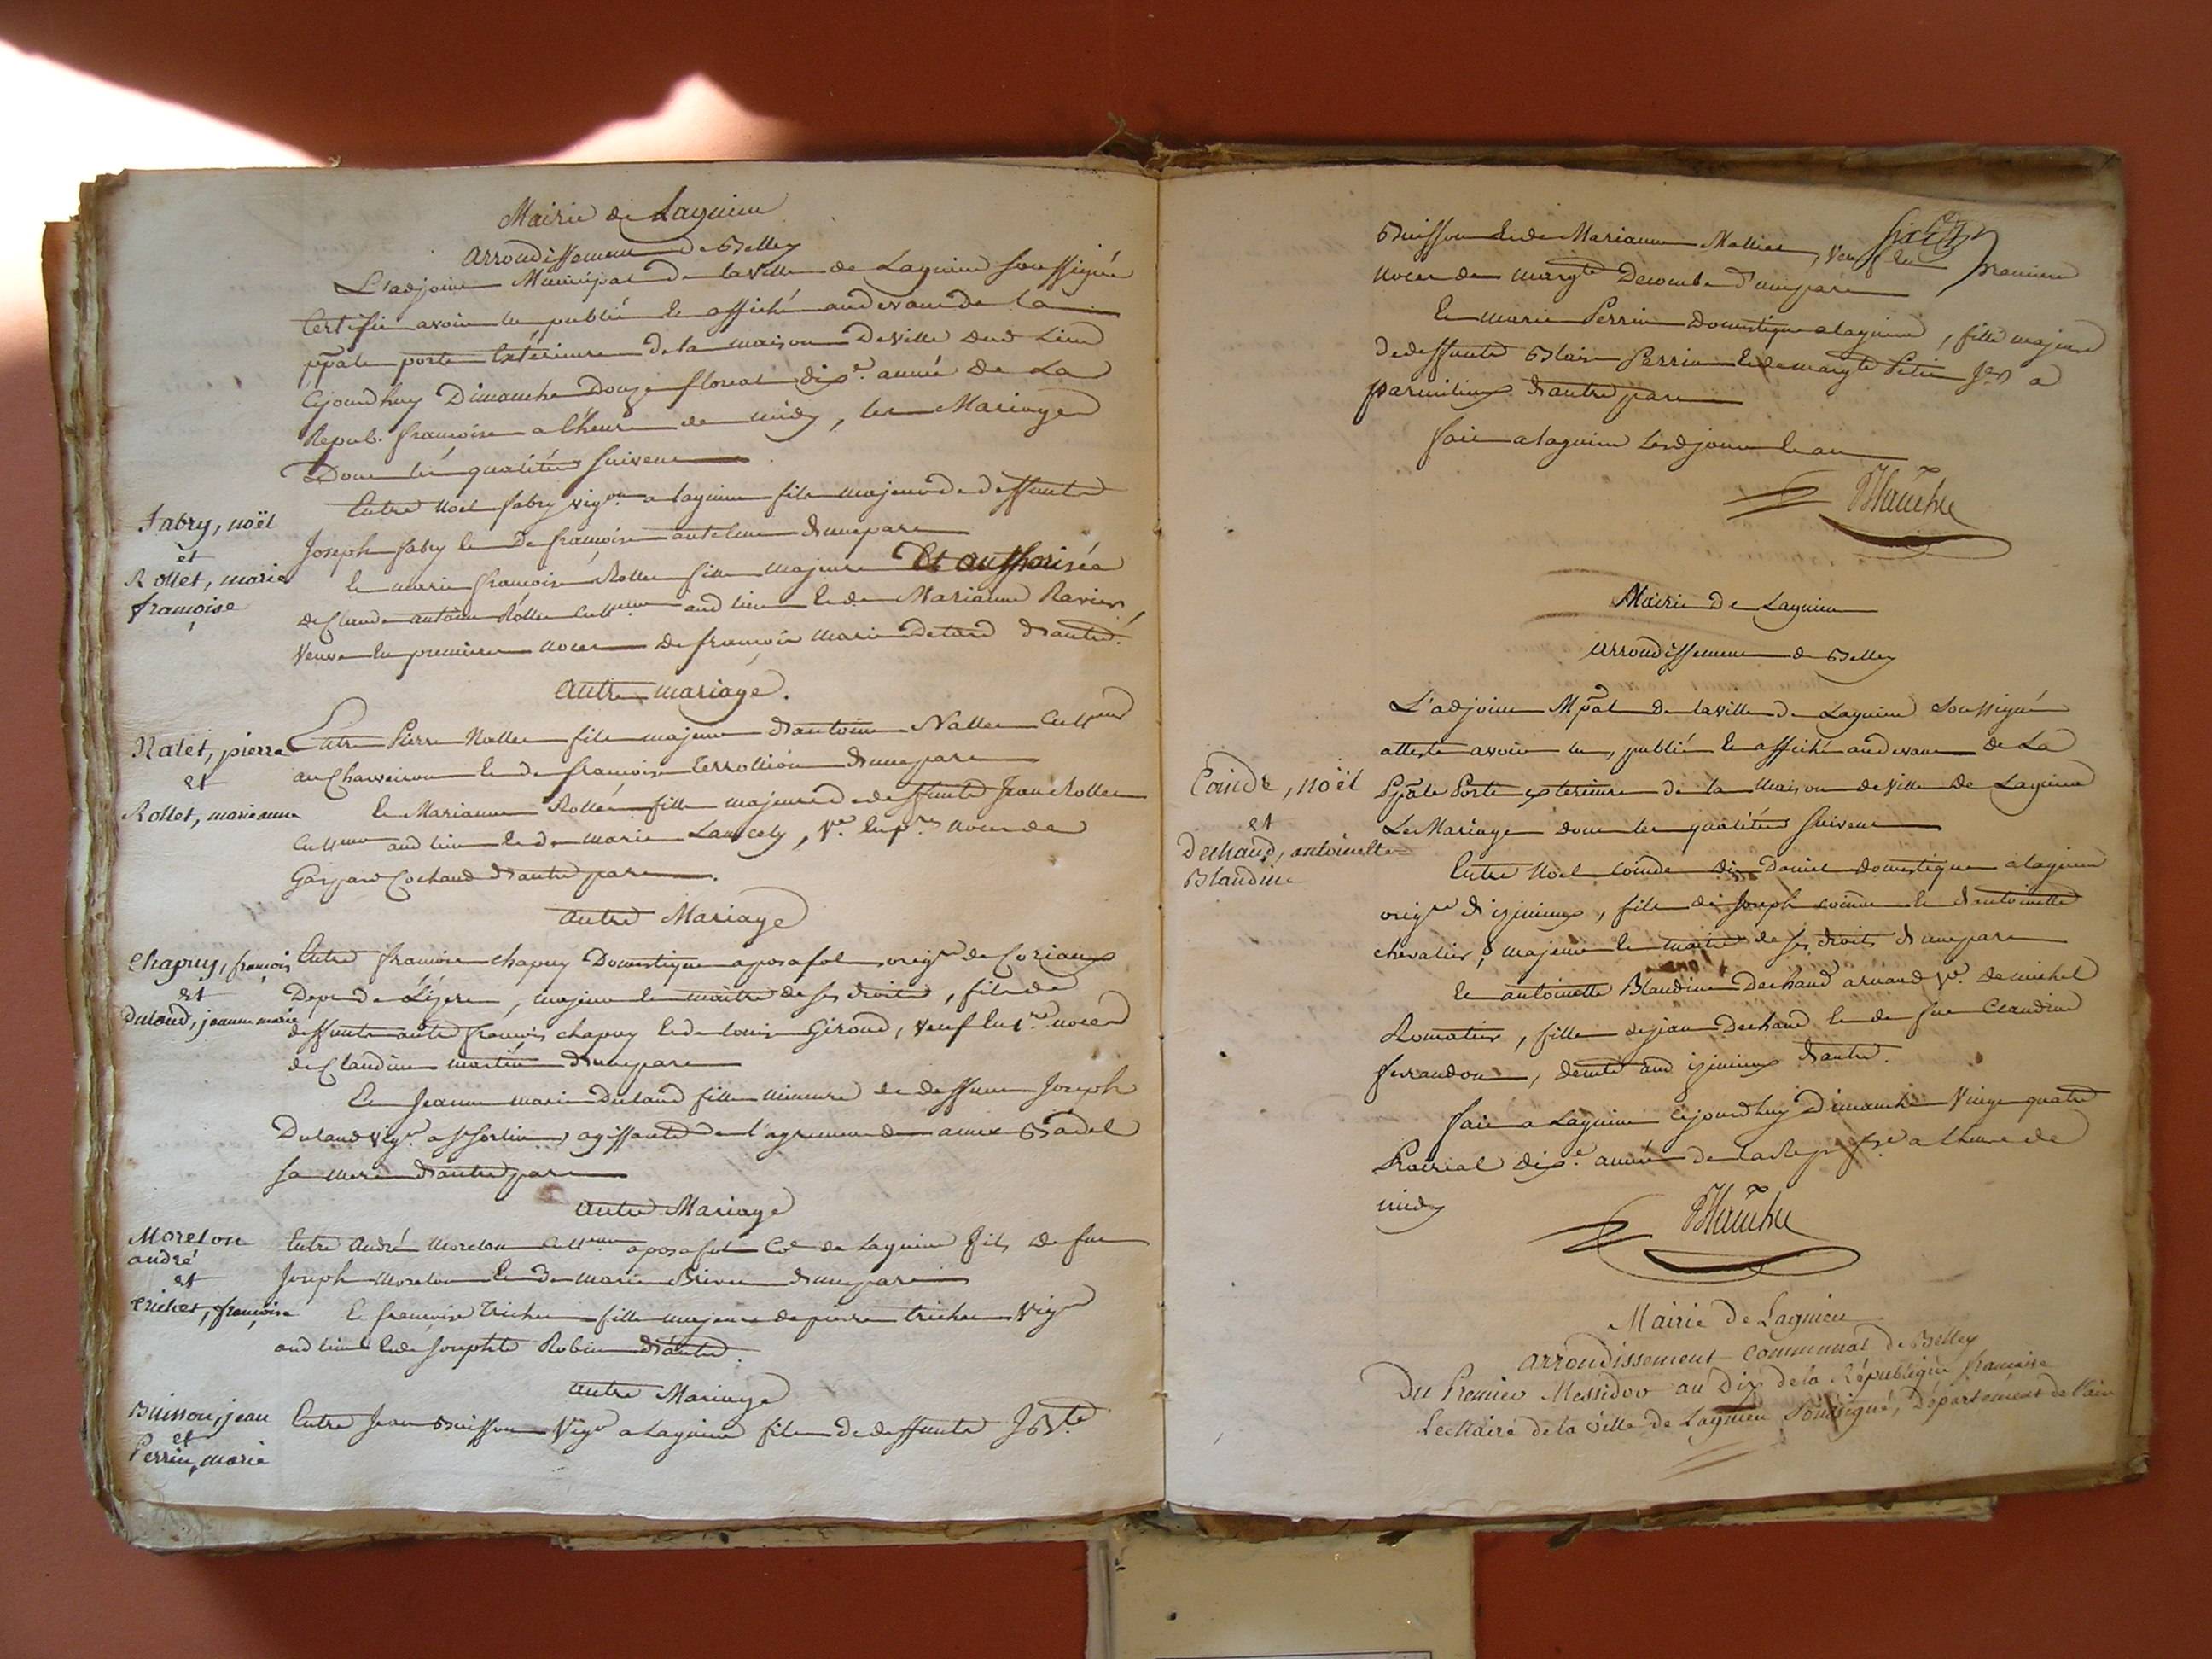 Mairie de Lagnieu
arrondissement de Belley
L'adjoint Municipal de la ville de Lagnieu soussigné
Certifie avoir lu publié et affiché audevant de la
ppale porte Extérieure de la maison De ville dud Lieu
Cejourdhuy Dimanche Douze floreal dixe. année de La
Repub. françoise a l'heure de midy, les Mariages
Dont les qualités suivent
Fabry, noël
et
Rollet, marie
françoise
Entre Noel fabry vigon a lagnieu fils majeur de deffunte
Joseph fabry et De françoise antelme d'unepart
Et marie françoise Rollet fille majeure Et authorisée
de Claude antoine Rollet Cultteur aud lieu et de Marianne Ravier,
Veuve En premieres noces De françois marie Detard d'autre.
Autre mariage.
Nalet, pierre
et
Rollet, marieanne
Entre Pierre Nallet fils majeur d'antoine Nallet Cultteur
au Charveiron et de françoise Terrollion d'unepart
Et Marianne Rollet fille majeure de deffunte Jean Rollet
Cultteur aud lieu et de marie Lancely, Ve. En pres noces de
Gaspard Cochaud d'autre part.
autre Mariage
Chapuy, françois
et
Duland, jeanne marie
Entre françois chapuy Domestique a posafol origre de Corian
Depend. de Lizere, majeur et maitre de ses droits, fils de
deffunte autre françois chapuy et de louise Giroud, veuf En 1res noces
de Claudine martin d'unepart
Et Jeanne marie Duland fille mineure de deffunt Joseph
Duland vigr. a St Sorlin, agissante de l'agrement de anne Badel
sa mere d'autre part
autre Mariage
Moreton
andré
et
trichet, françoise
Entre André Moreton Cultteur a posafol Cne de Lagnieu fils de fut
Joseph Moreton et de marie Brivet d'unepart
Et françoise Trichet fille majeure de pierre trichet Vigr
aud lieu et de Josephte Robin d'autre.
autre Mariage
Buisson, jean
et
Perrin, marie
Entre Jean Buisson Vigr a Lagnieu fils de deffunte J Bte
Buisson et de Marianne Mallier, veuf En premiere
noces de margte Decombe d'unepart
Et marie Perrin Domestique a lagnieu, fille majeure
de deffunte Blaise Perrin et de margte Petit a
parmilieu d'autre part
fait a lagnieu Lesd jour et an
Blanchet
Mairie De Lagnieu
arrondissement de Belley
L'adjoint Mpal de la ville de Lagnieu soussigné
atteste avoir lu, publié et affiché audevant de La
Ppale Porte exterieure de la Maison de ville de Lagnieu
Le Mariage dont les qualités suivent
Coinde, noël
et
Dechaud, antoinette
Blandine
Entre Noel Coinde dit Daniel domestique a lagnieu
origre d'izinieux, fils de Joseph coinde et d'antoinette
chevalier, majeur et maitre de ses droits d'unepart
Et antoinette Blandine Dechaud arnaud Ve. de michel
Romatier, fille de jean Dechaud et de fue Claudine
ferrandon, demte aud izinieux d'autre.
fait a Lagnieu cejourdhuy Dimanche Vingt quatre
Prairial dixe. année de la Rep. fse a lheure de
midy
Blanchet
Mairie de Lagnieu
arrondissement communal de Belley
Du Premier Messidor an Dix de la République française
Le Maire de la ville de Lagnieu Soussigné, Département de l'ain